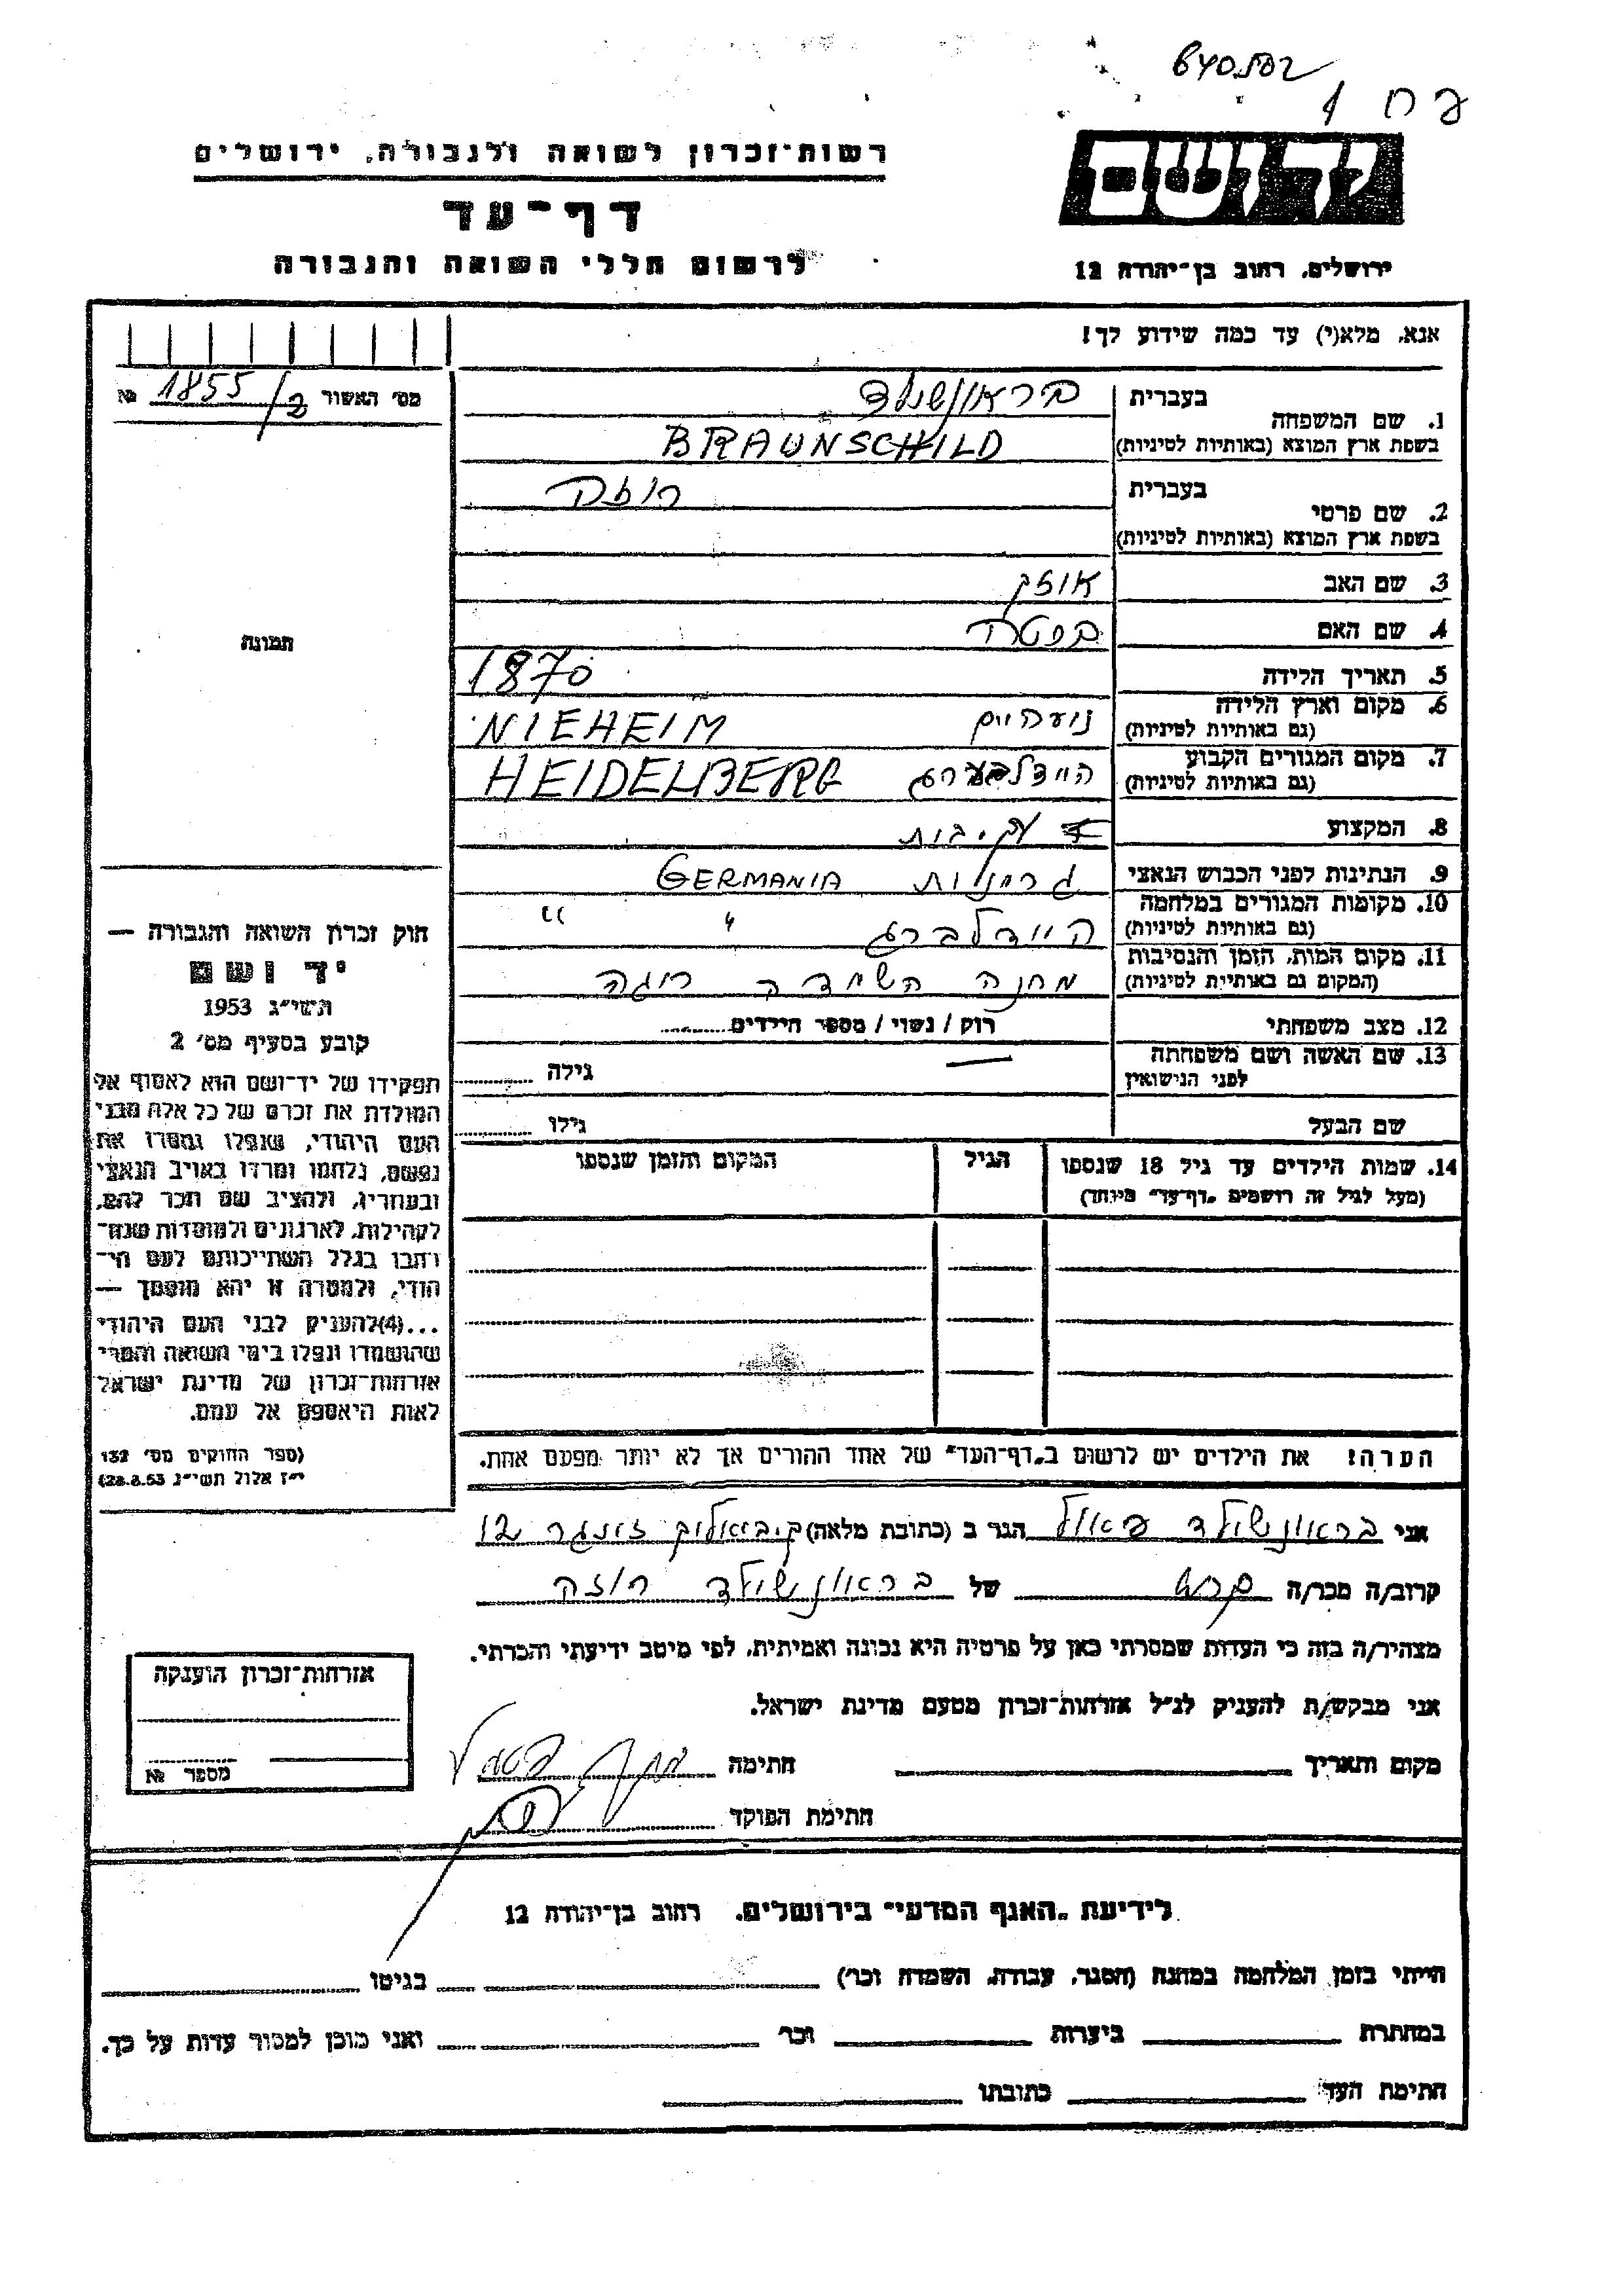 רשות-זכרון לשואה ולגבורה, ירושלים
דף-עד
לרשום חללי השואה והגבורה
יד ושם
ירושלים, רחוב בן-יהודה 12
אנא, מלא(י) עד כמה שידוע לך!
מס׳ האשור 1855/2 №
1. שם המשפחה
בעברית בראונשילד
בשפת ארץ המוצא (באותיות לטיניות) BRAUNSCHILD
2. שם פרטי
בעברית רוזה
בשפת ארץ המוצא (באותיות לטיניות)
3. שם האב
4. שם האם
5. תאריך הלידה 1870
6. מקום וארץ הלידה
(גם באותיות לטיניות) NIEHEIM
7. מקום המגורים הקבוע
(גם באותיות לטיניות) היידלבערג HEIDELBERG
8. המקצוע
9. הנתינות לפני הכבוש הנאצי גרמנית GERMANIA
10. מקומות המגורים במלחמה
(גם באותיות לטיניות) היידלברג " "
11. מקום המות, הזמן והנסיבות
(המקום גם באותיות לטיניות) מחנה השמדה ריגה
12. מצב משפחתי רוק / נשוי / מספר הילדים
13. שם האשה ושם משפחתה
לפני הנישואין — גילה
שם הבעל גילו
14. שמות הילדים עד גיל 18 שנספו
(מעל לגיל זה רושמים "דף-עד" מיוחד)
הגיל
המקום והזמן שנספו
הערה! את הילדים יש לרשום ב"דף-העד" של אחד ההורים אך לא יותר מפעם אחת.
תמונה
חוק זכרון השואה והגבורה —
יד ושם
תשי״ג 1953
קובע בסעיף מס׳ 2
תפקידו של יד-ושם הוא לאסוף אל
המולדת את זכרם של כל אלה מבני
העם היהודי, שנפלו ומסרו את
נפשם, נלחמו ומרדו באויב הנאצי
ובעוזריו, ולהציב שם וזכר להם,
לקהילות, לארגונים ולמוסדות שנח-
רתבו בגלל השתייכותם לעם הי-
הודי, ולמטרה זו יהא מוסמך —
...(4)להעניק לבני העם היהודי
שהושמדו ונפלו בימי השואה והמרי
אזרחות-זכרון של מדינת ישראל
לאות היאספם אל עמם.
(ספר החוקים מס׳ 132
י״ז אלול תשי״ג 28.8.53)
אני בראונשילד פאול הגר ב (כתובת מלאה) 12
קרוב/ה מכר/ה של בראונשילד רוזה
מצהיר/ה בזה כי העדות שמסרתי כאן על פרטיה היא נכונה ואמיתית, לפי מיטב ידיעתי והכרתי.
אני מבקש/ת להעניק לנ״ל אזרחות-זכרון מטעם מדינת ישראל.
מקום ותאריך חתימה
חתימת הפוקד
אזרחות-זכרון הוענקה
מספר №
לידיעת "האגף המדעי" בירושלים, רחוב בן-יהודה 12
הייתי בזמן המלחמה במחנה (הסגר, עבודה, השמדה וכו׳) בגיטו
במחתרת ביערות וכו׳ ואני מוכן למסור עדות על כך.
חתימת העד כתובתו